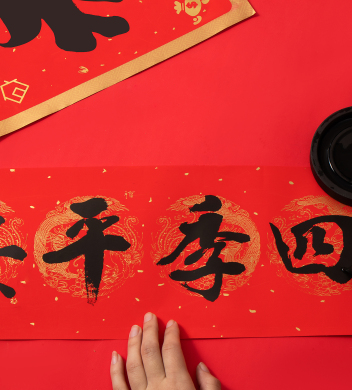 四季平